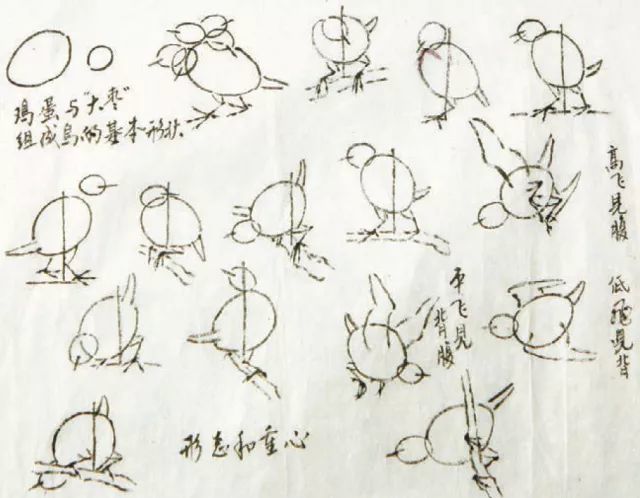 鸡蛋与“大枣”
组成鸟的基本形状.
高飞見腹
低飛見背
平飞見
背腹
形态和重心